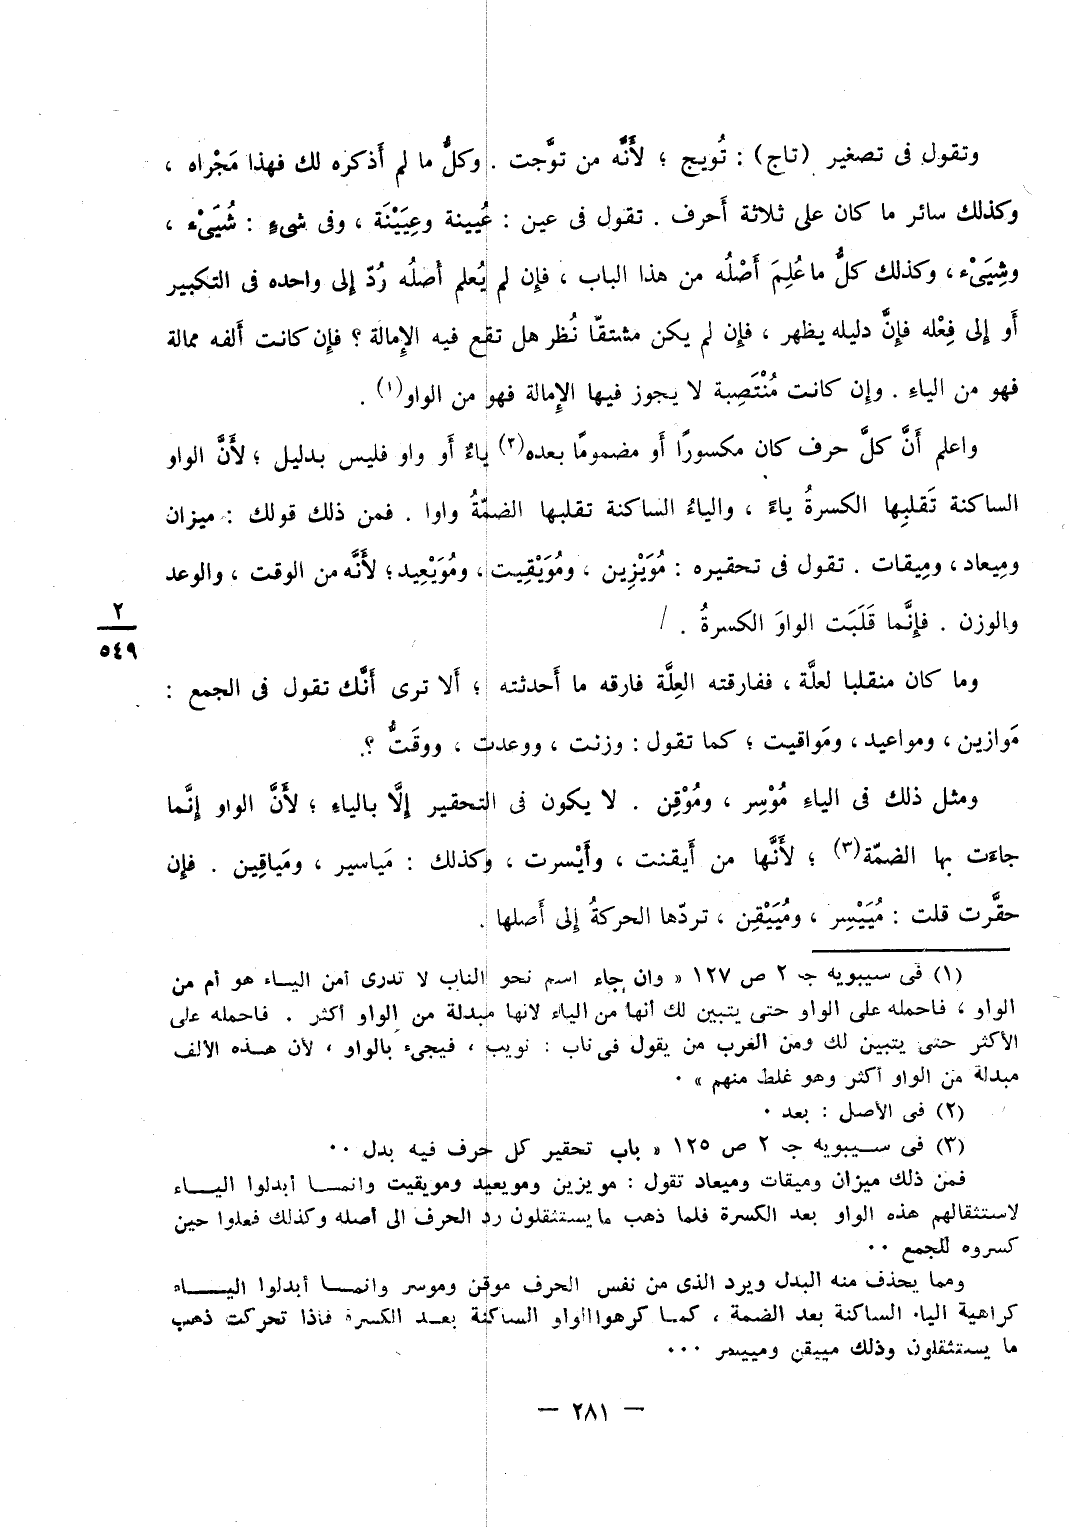 وتقول فى تصغير (تاج) : تُويج ؛ لأَنَّه من توَّجت . وكلُّ ما لم أَذكره لك فهذا مَجْراه ،
وكذلك سائر ما كان على ثلاثة أَحرف . تقول فى عين : عُيينة وعِيَيْنَة ، وفى شىءٍ : شُيَىْء ،
وشِيَىْء ، وكذلك كلُّ ما عُلِمَ أَصْلُه من هذا الباب ، فإِن لم يُعلم أَصلُه رُدّ إِلى واحده فى التكبير
أَو إِلى فِعْله فإِنَّ دليله يظهر ، فإِن لم يكن مشتقّا نُظر هل تقع فيه الإِمالة ؟ فإِن كانت أَلفه ممالة
فهو من الياءِ . وإِن كانت مُنْتَصِبة لا يجوز فيها الإِمالة فهو من الواو(١) .
واعلم أَنَّ كلَّ حرف كان مكسورًا أَو مضمومًا بعده(٢) ياءٌ أَو واو فليس بدليل ؛ لأَنَّ الواو
الساكنة تَقلبها الكسرةُ ياءً ، والياءُ الساكنة تقلبها الضمّةُ واوا . فمن ذلك قولك : ميزان
ومِيعاد ، ومِيقات . تقول فى تحقيره : مُوَيْزِين ، ومُوَيْقِيت ، ومُوَيْعِيد ؛ لأَنَّه من الوقت ، والوعد
والوزن . فإِنَّما قَلَبَت الواوَ الكسرةُ . /
٢
٥٤٩
وما كان منقلبا لعلَّة ، ففارقته العِلَّة فارقه ما أَحدثته ؛ أَلا ترى أَنَّك تقول فى الجمع :
مَوازين ، ومواعيد ، ومَواقيت ؛ كما تقول : وزنت ، ووعدت ، ووقَتُّ ؟.
ومثل ذلك فى الياءِ مُوْسِر ، ومُوْقِن . لا يكون فى التحقير إِلَّا بالياءِ ؛ لأَنَّ الواو إِنَّما
جاءَت بها الضمّة(٣) ؛ لأَنَّها من أَيقنت ، وأَيْسرت ، وكذلك : مَياسير ، ومَياقِين . فإِن
حقَّرت قلت : مُيَيْسِر ، ومُيَيْقِن ، تردّها الحركةُ إِلى أَصلها .
(١) فى سيبويه ج ٢ ص ١٢٧ « وان جاء اسم نحو الناب لا تدرى أمن اليـاء هو أم من
الواو ، فاحمله على الواو حتى يتبين لك أنها من الياء لانها مبدلة من الواو أكثر . فاحمله على
الأكثر حتى يتبين لك ومن العرب من يقول فى ناب : نويب ، فيجىء بالواو ، لأن هـذه الألف
مبدلة من الواو أكثر وهو غلط منهم » ٠
(٢) فى الأصل : بعد ٠
(٣) فى سـيبويه ج ٢ ص ١٢٥ « باب تحقير كل حرف فيه بدل ٠٠
فمن ذلك ميزان وميقات وميعاد تقول : مويزين ومويعيد ومويقيت وانمـا أبدلوا اليـاء
لاستثقالهم هذه الواو بعد الكسرة فلما ذهب ما يستثقلون رد الحرف الى أصله وكذلك فعلوا حين
كسروه للجمع ٠٠
ومما يحذف منه البدل ويرد الذى من نفس الحرف موقن وموسر وانمـا أبدلوا اليـاء
كراهية الياء الساكنة بعد الضمة ، كمـا كرهوا الواو الساكنة بعـد الكسرة فاذا تحركت ذهب
ما يستثقلون وذلك مييقن ومييسر ٠٠٠
— ٢٨١ —